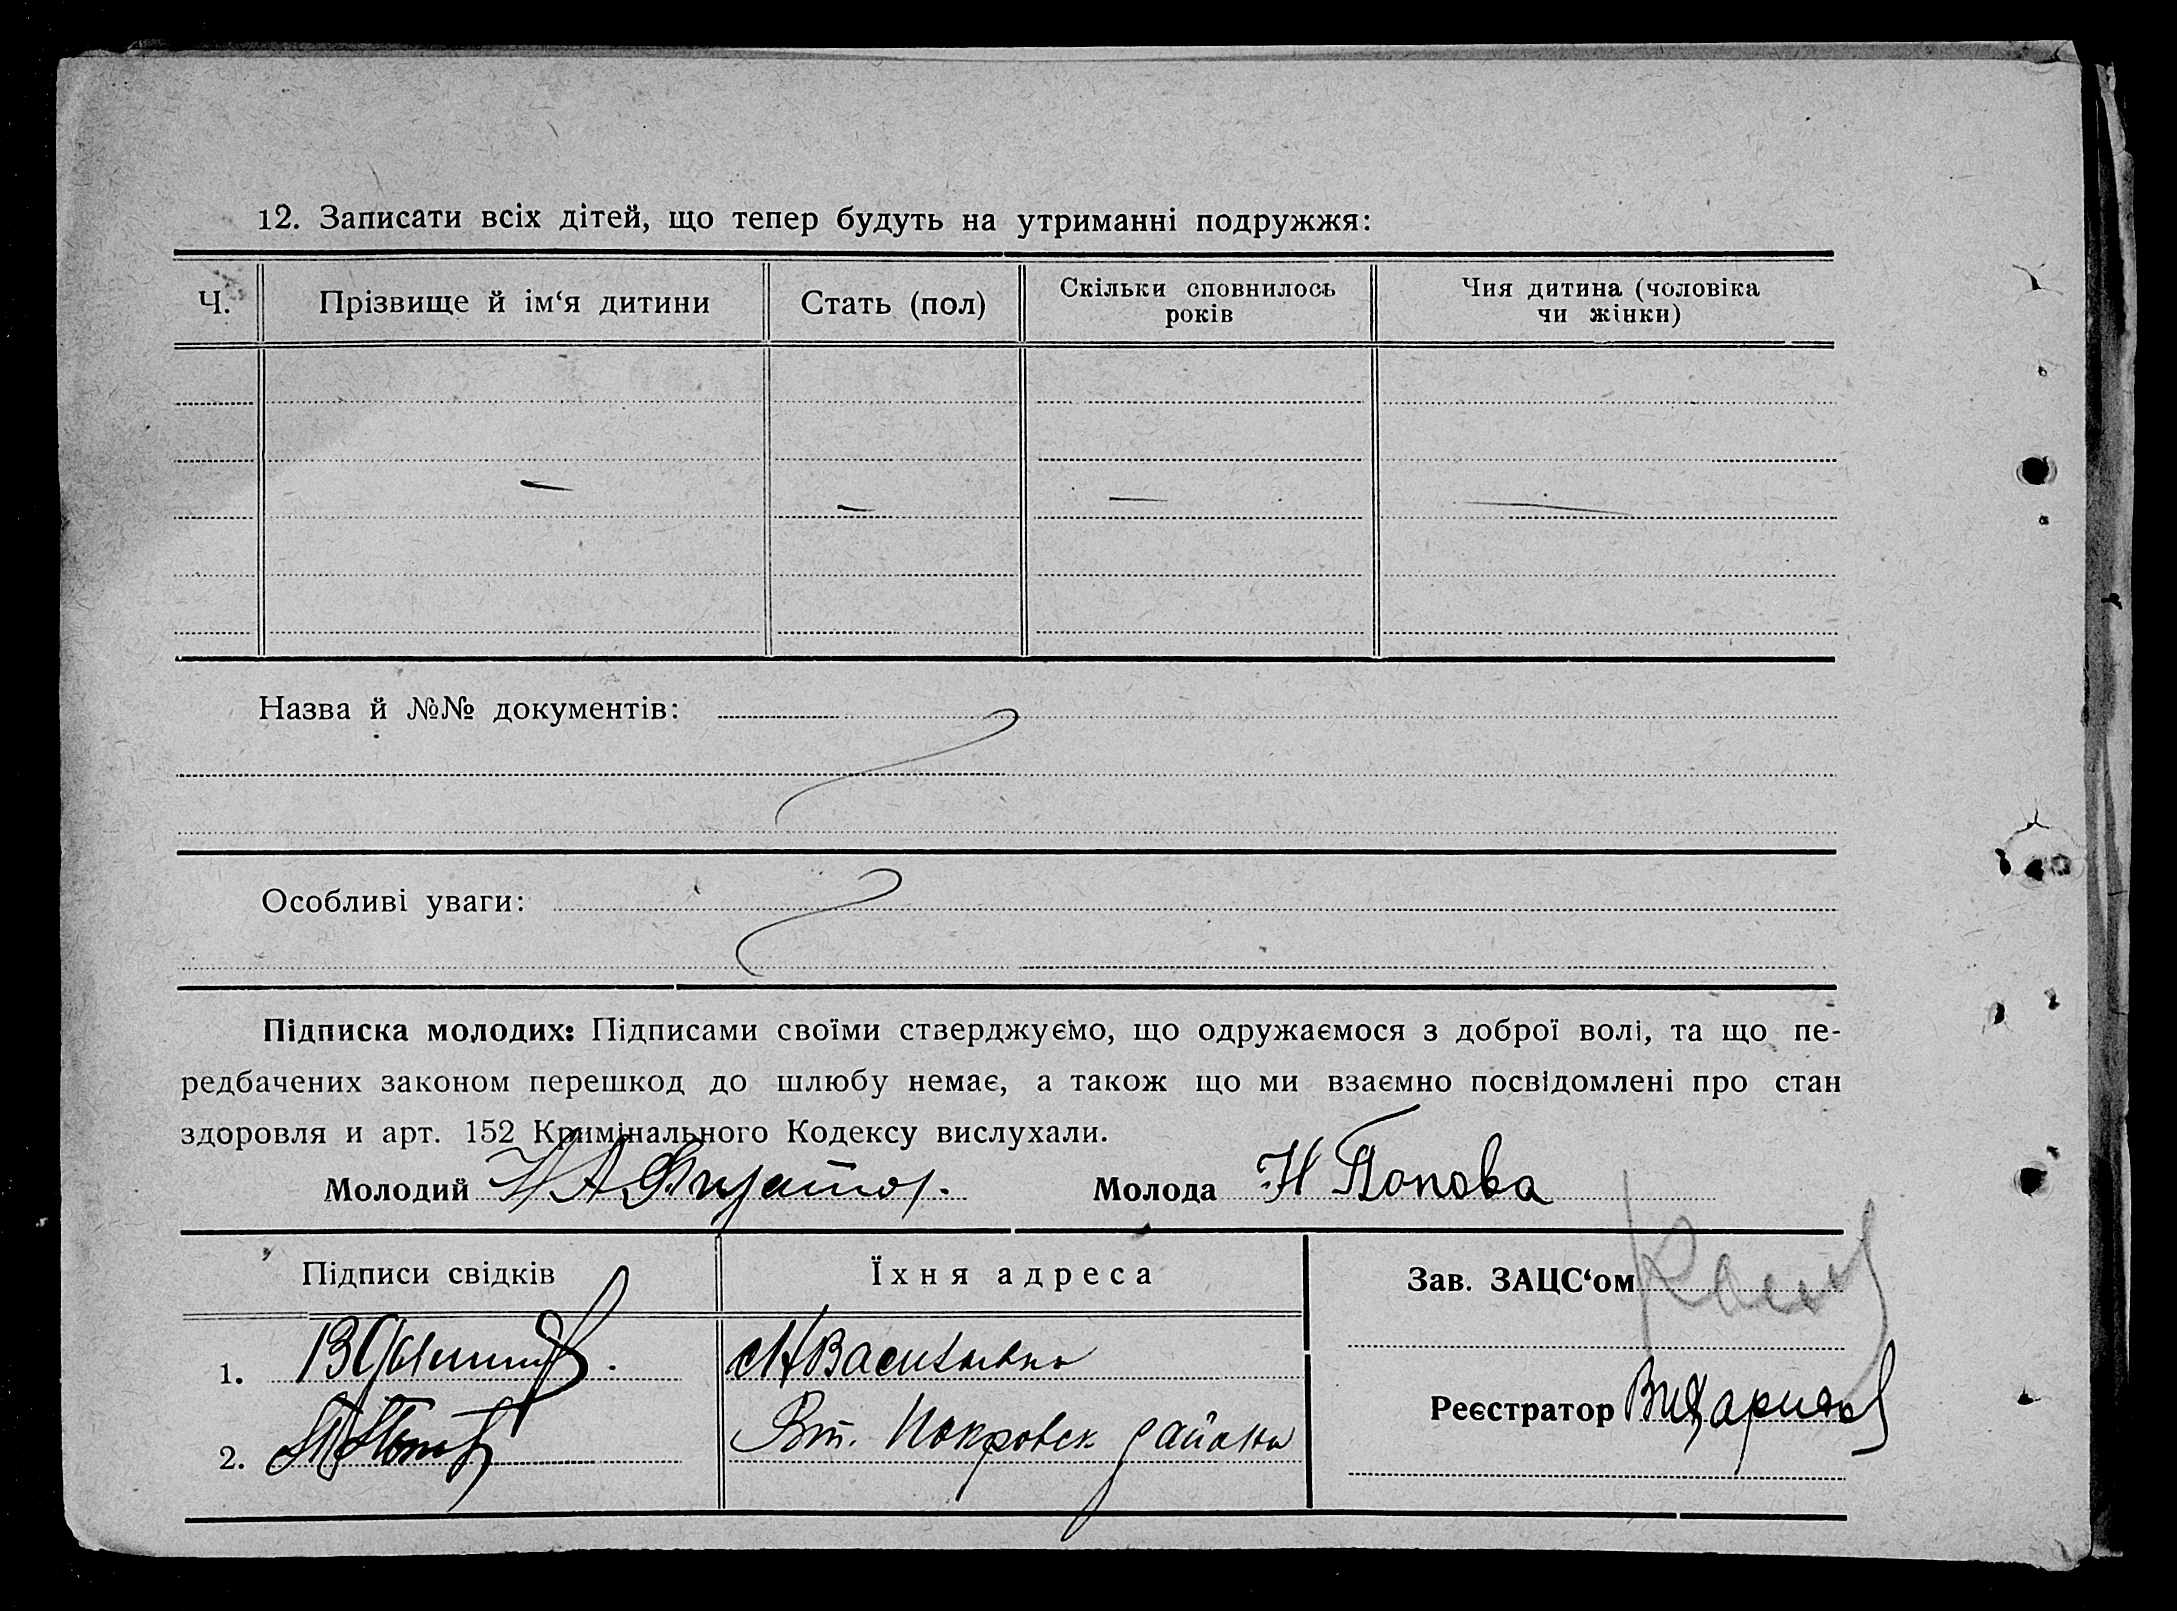 12. Записати всіх дітей, що тепер будуть на утриманні подружжя:
Ч. Прізвище й ім‘я дитини Стать (пол) Скільки сповнилось років Чия дитина (чоловіка чи жінки)
Назва й №№ документів:
Особливі уваги:
Підписка молодих: Підписами своїми стверджуємо, що одружаємося з доброї волі, та що пе-
редбачених законом перешкод до шлюбу немає, а також що ми взаємно посвідомлені про стан
здоровля и арт. 152 Кримінального Кодексу вислухали.
Молодий Молода Н Попова
Підписи свідків Їхня адреса Зав. ЗАЦС‘ом
1.
2. Покровск района
Реєстратор